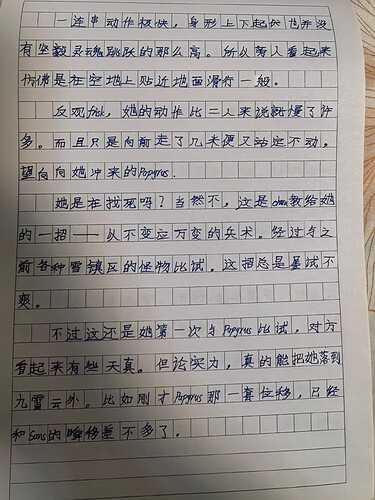 一连串动作极快，身形上下起伏也并没
有坚毅灵魂跳跃的那么高。所以旁人看起来
仿佛是在空地上贴近地面滑行一般。
反观frisk，她的动作比二人来说就慢了许
多。而且只是向前走了几米便又站定不动，
望向向她冲来的Papyrus.
她是在找死吗？当然不，这是chara教给她
的一招——以不变应万变的兵术。经过与之
前各种雪镇区的怪物比试，这招总是屡试不
爽。
不过这还是她第一次与Papyrus比试，对方
看起来有些天真。但论实力，真的能把她落到
九霄云外。比如刚才Papyrus那一套位移，已经
和Sans的瞬移差不多了，